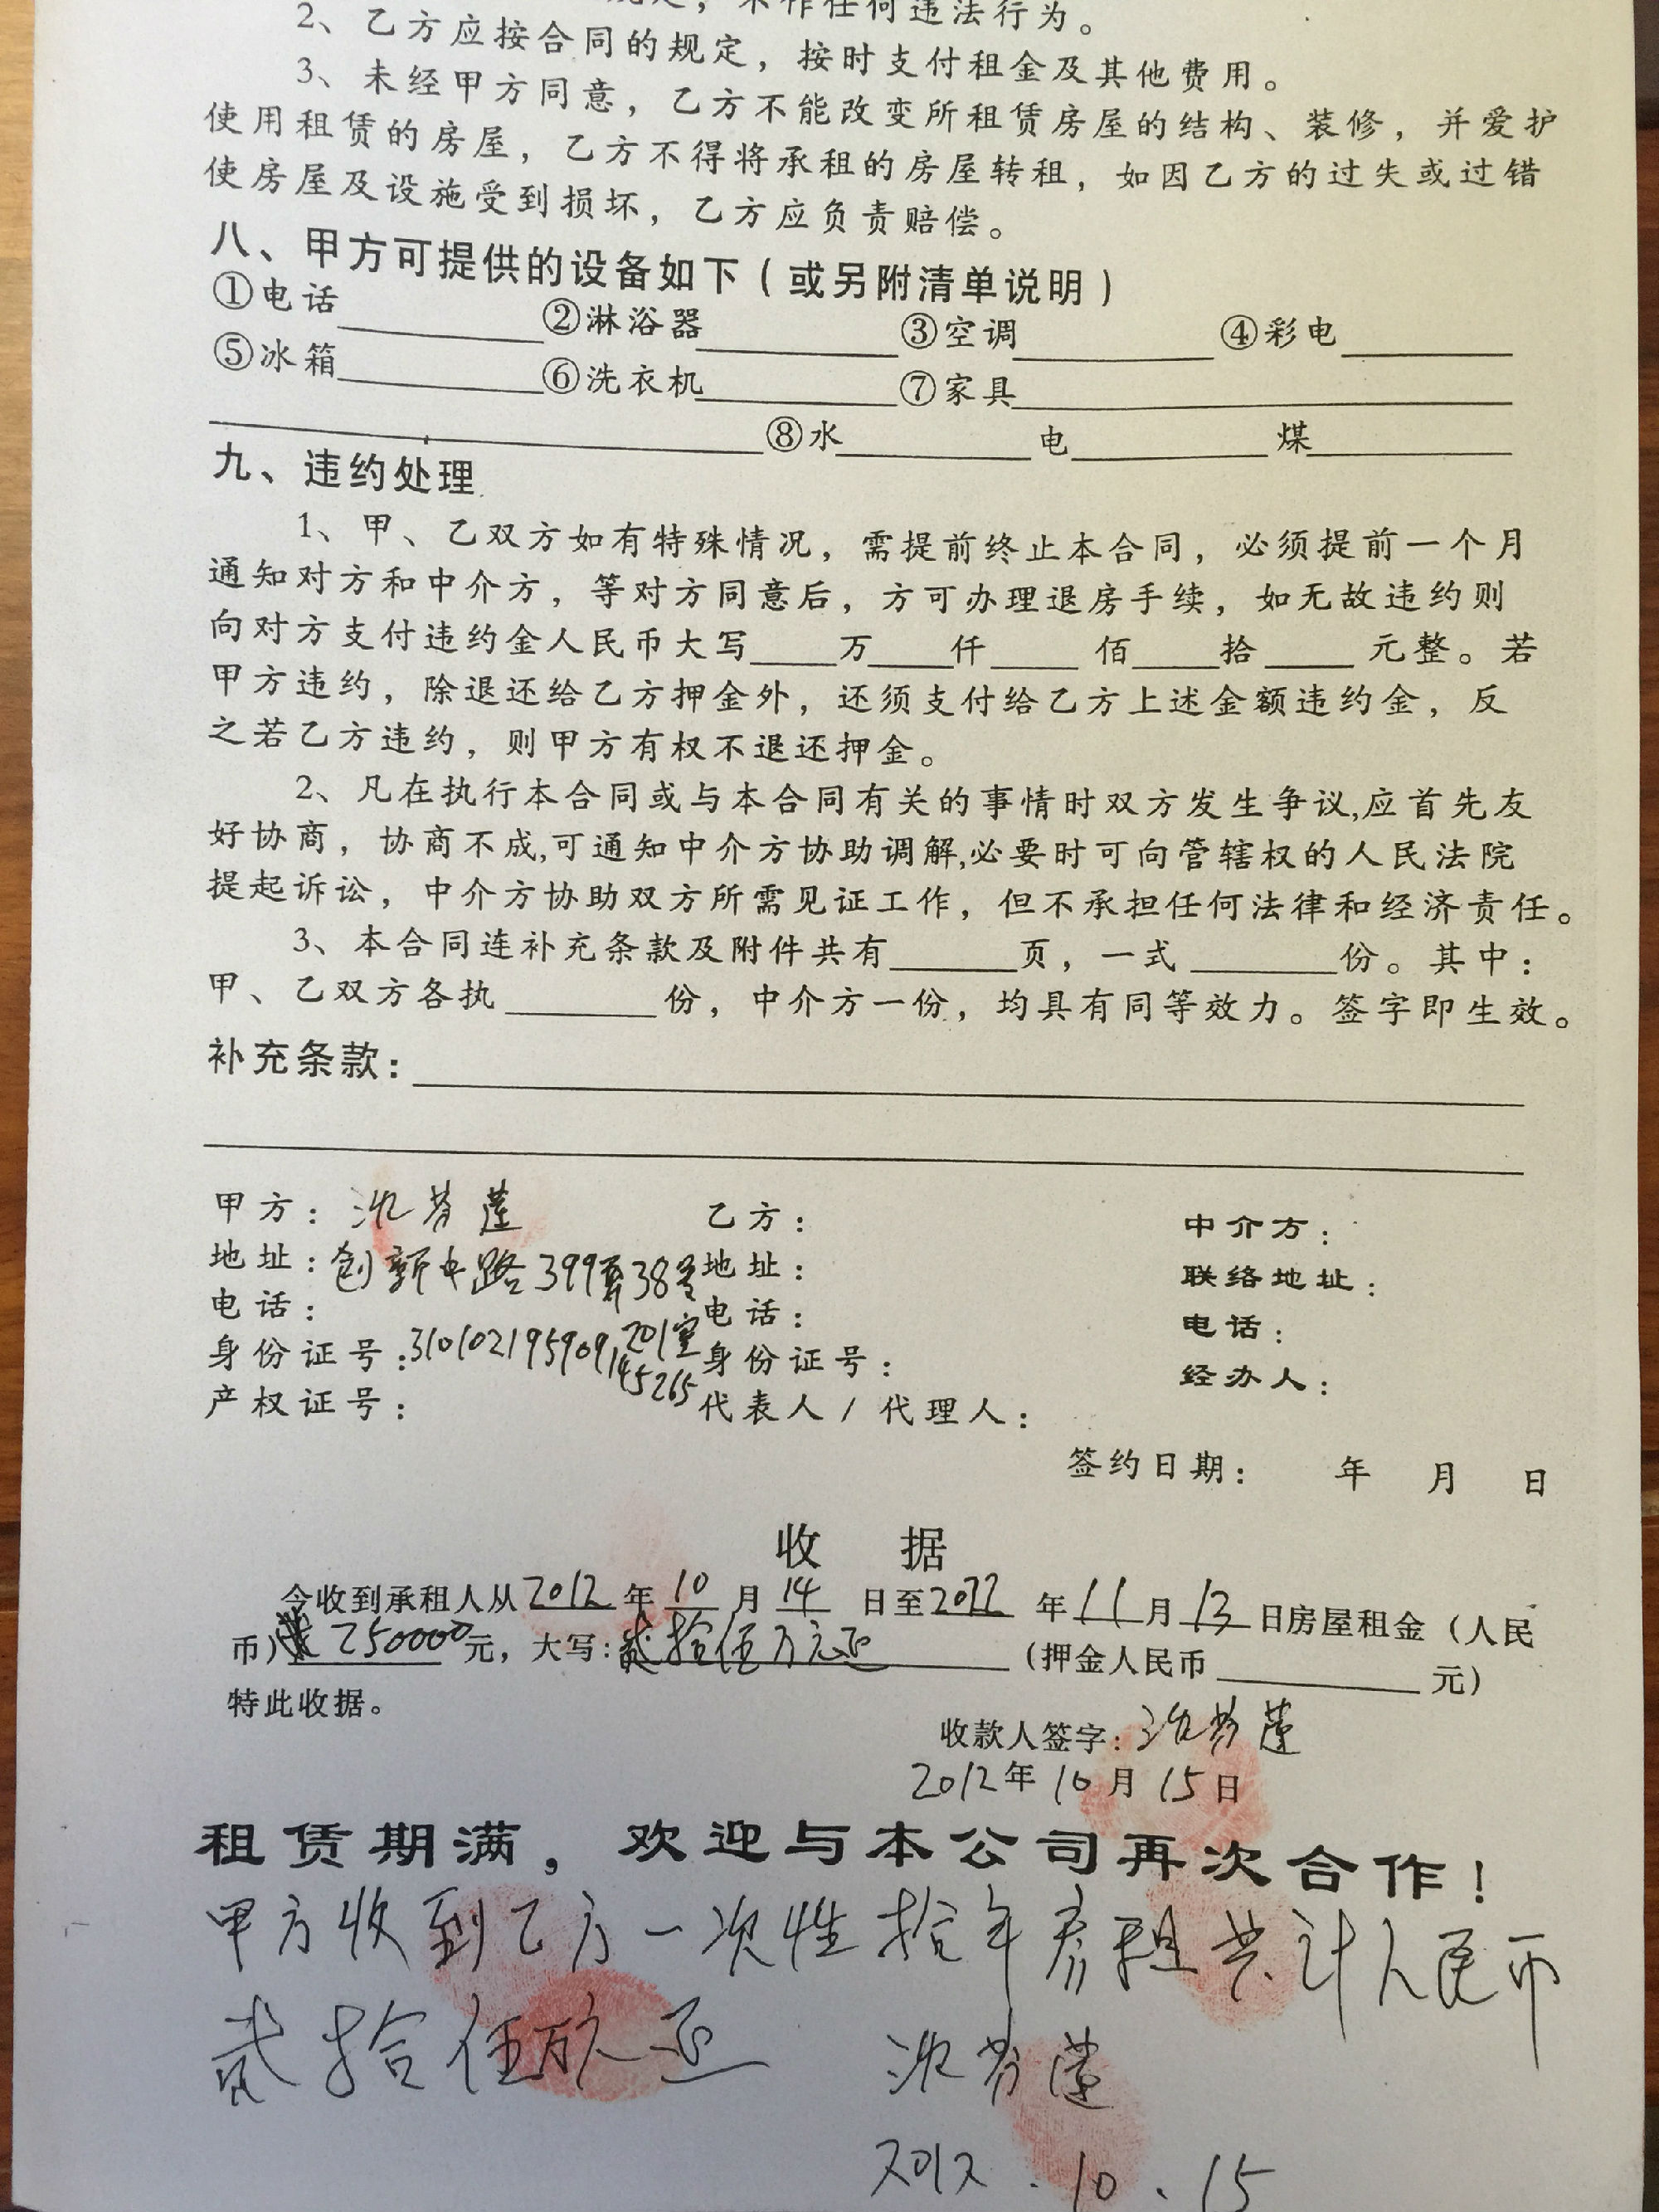 规定，不作任何违法行为。
2、乙方应按合同的规定，按时支付租金及其他费用。
3、未经甲方同意，乙方不能改变所租赁房屋的结构、装修，并爱护
使用租赁的房屋，乙方不得将承租的房屋转租，如因乙方的过失或过错
使房屋及设施受到损坏，乙方应负责赔偿。
八、甲方可提供的设备如下（或另附清单说明）
①电话______②淋浴器______③空调______④彩电______
⑤冰箱______⑥洗衣机______⑦家具______
______⑧水______电______煤______
九、违约处理
1、甲、乙双方如有特殊情况，需提前终止本合同，必须提前一个月
通知对方和中介方，等对方同意后，方可办理退房手续，如无故违约则
向对方支付违约金人民币大写____万____仟____佰____拾____元整。若
甲方违约，除退还给乙方押金外，还须支付给乙方上述金额违约金，反
之若乙方违约，则甲方有权不退还押金。
2、凡在执行本合同或与本合同有关的事情时双方发生争议,应首先友
好协商，协商不成,可通知中介方协助调解,必要时可向管辖权的人民法院
提起诉讼，中介方协助双方所需见证工作，但不承担任何法律和经济责任。
3、本合同连补充条款及附件共有______页，一式______份。其中：
甲、乙双方各执______份，中介方一份，均具有同等效力。签字即生效。
补充条款：
甲方：沈芳莲 乙方： 中介方：
地址：创新中路399弄38号 地址： 联络地址：
201室
电话： 电话： 电话：
身份证号：310102195909145265 身份证号： 经办人：
产权证号： 代表人/代理人：
签约日期： 年 月 日
收 据
今收到承租人从2012年10月14日至2022年11月13日房屋租金（人民
币）250000元，大写：贰拾伍万元正（押金人民币______元）
特此收据。
收款人签字：沈芳莲
2012年10月15日
租赁期满，欢迎与本公司再次合作！
甲方收到乙方一次性拾年房租共计人民币
贰拾伍万元正 沈芳莲
2012.10.15